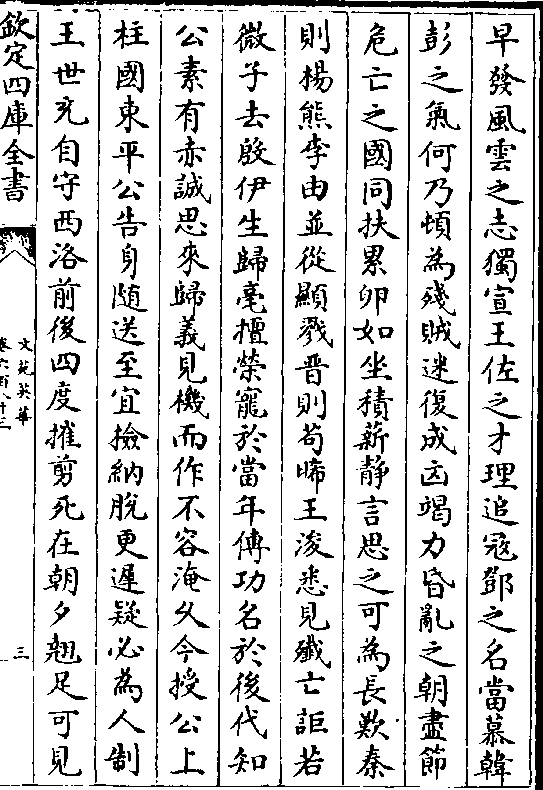 早發風雲之志獨宣王佐之才理追冦鄧之名當慕韓
彭之氣何乃頓為殘賊迷復成㐫竭力昏亂之朝盡節
危亡之國同扶累卵如坐積薪靜言思之可為長歎秦
則楊熊李由並從顯戮晋則苟晞王浚悉見殲亡詎若
微子去殷伊生歸亳擅榮寵於當年傳功名於後代知
公素有赤誠思來歸義見機而作不容淹久今授公上
柱國東平公告身随送至宜撿納脫更遲疑必為人制
王世充自守西洛前後四度摧剪死在朝夕翘足可見
欽定四庫全書
文苑英華
卷六百八十三
三